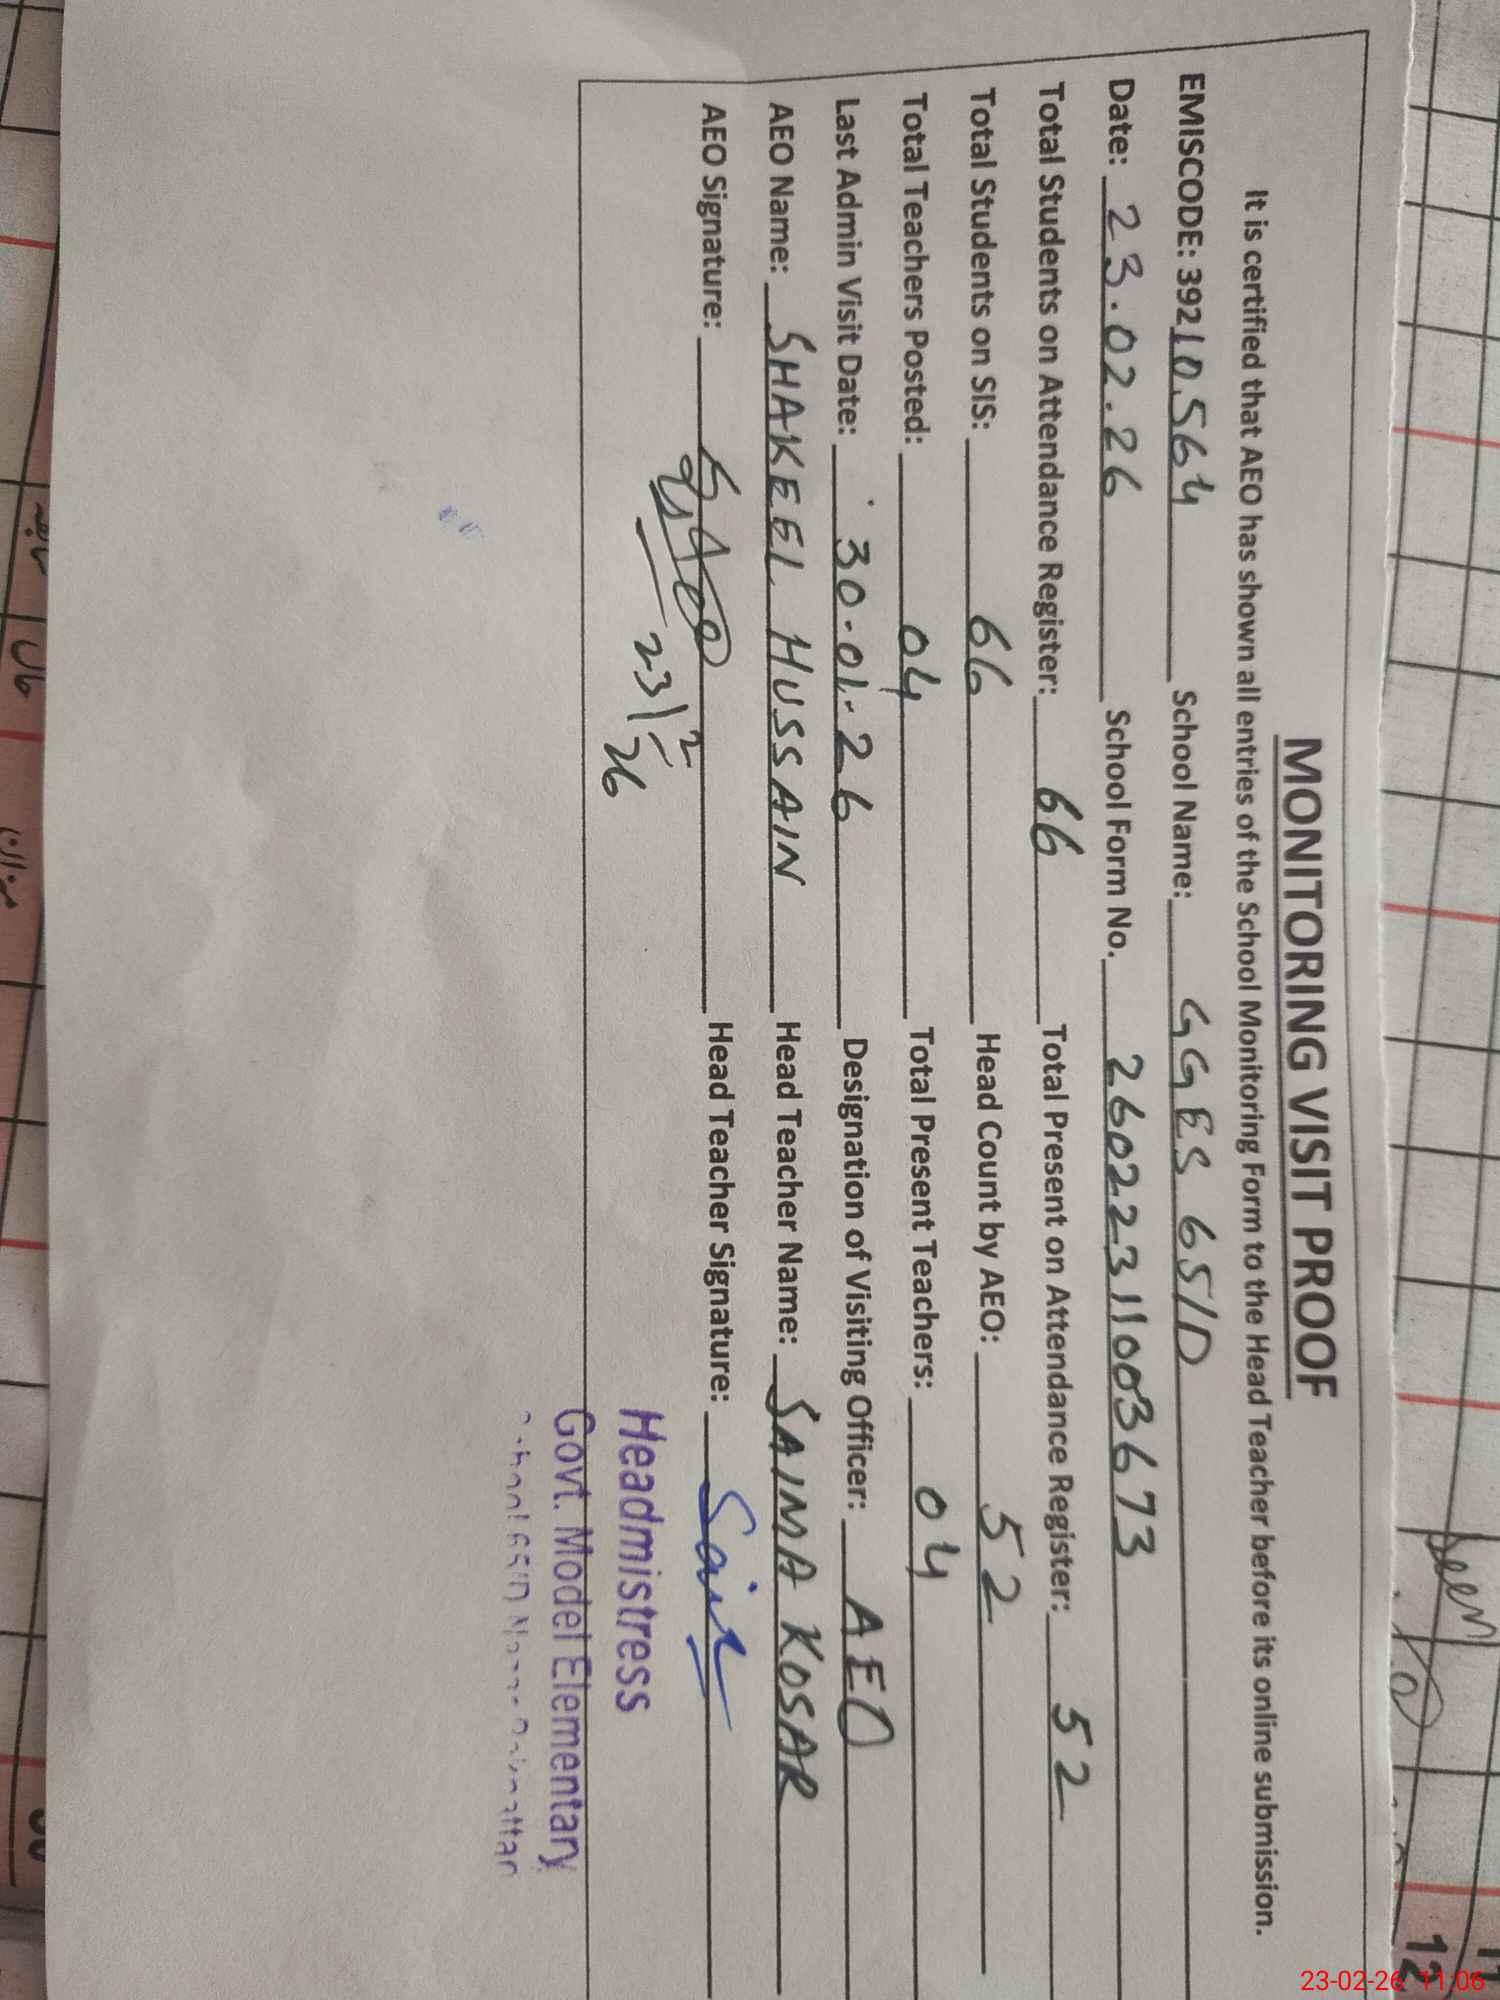 MONITORING VISIT PROOF
It is certified that AEO has shown all entries of the School Monitoring Form to the Head Teacher before its online submission.
EMISCODE: 39210564 School Name: GGES 65/D
Date: 23.02.26 School Form No. 26022311003673
Total Students on Attendance Register: 66 Total Present on Attendance Register: 52
Total Students on SIS: 66 Head Count by AEO: 52
Total Teachers Posted: 04 Total Present Teachers: 04
Last Admin Visit Date: 30-01-26 Designation of Visiting Officer: AEO
AEO Name: SHAKEEL HUSSAIN Head Teacher Name: SAIMA KOSAR
AEO Signature: Head Teacher Signature:
23/2/26
Headmistress
Govt. Model Elementary
Seen
12
میزان
23-02-26 11:06